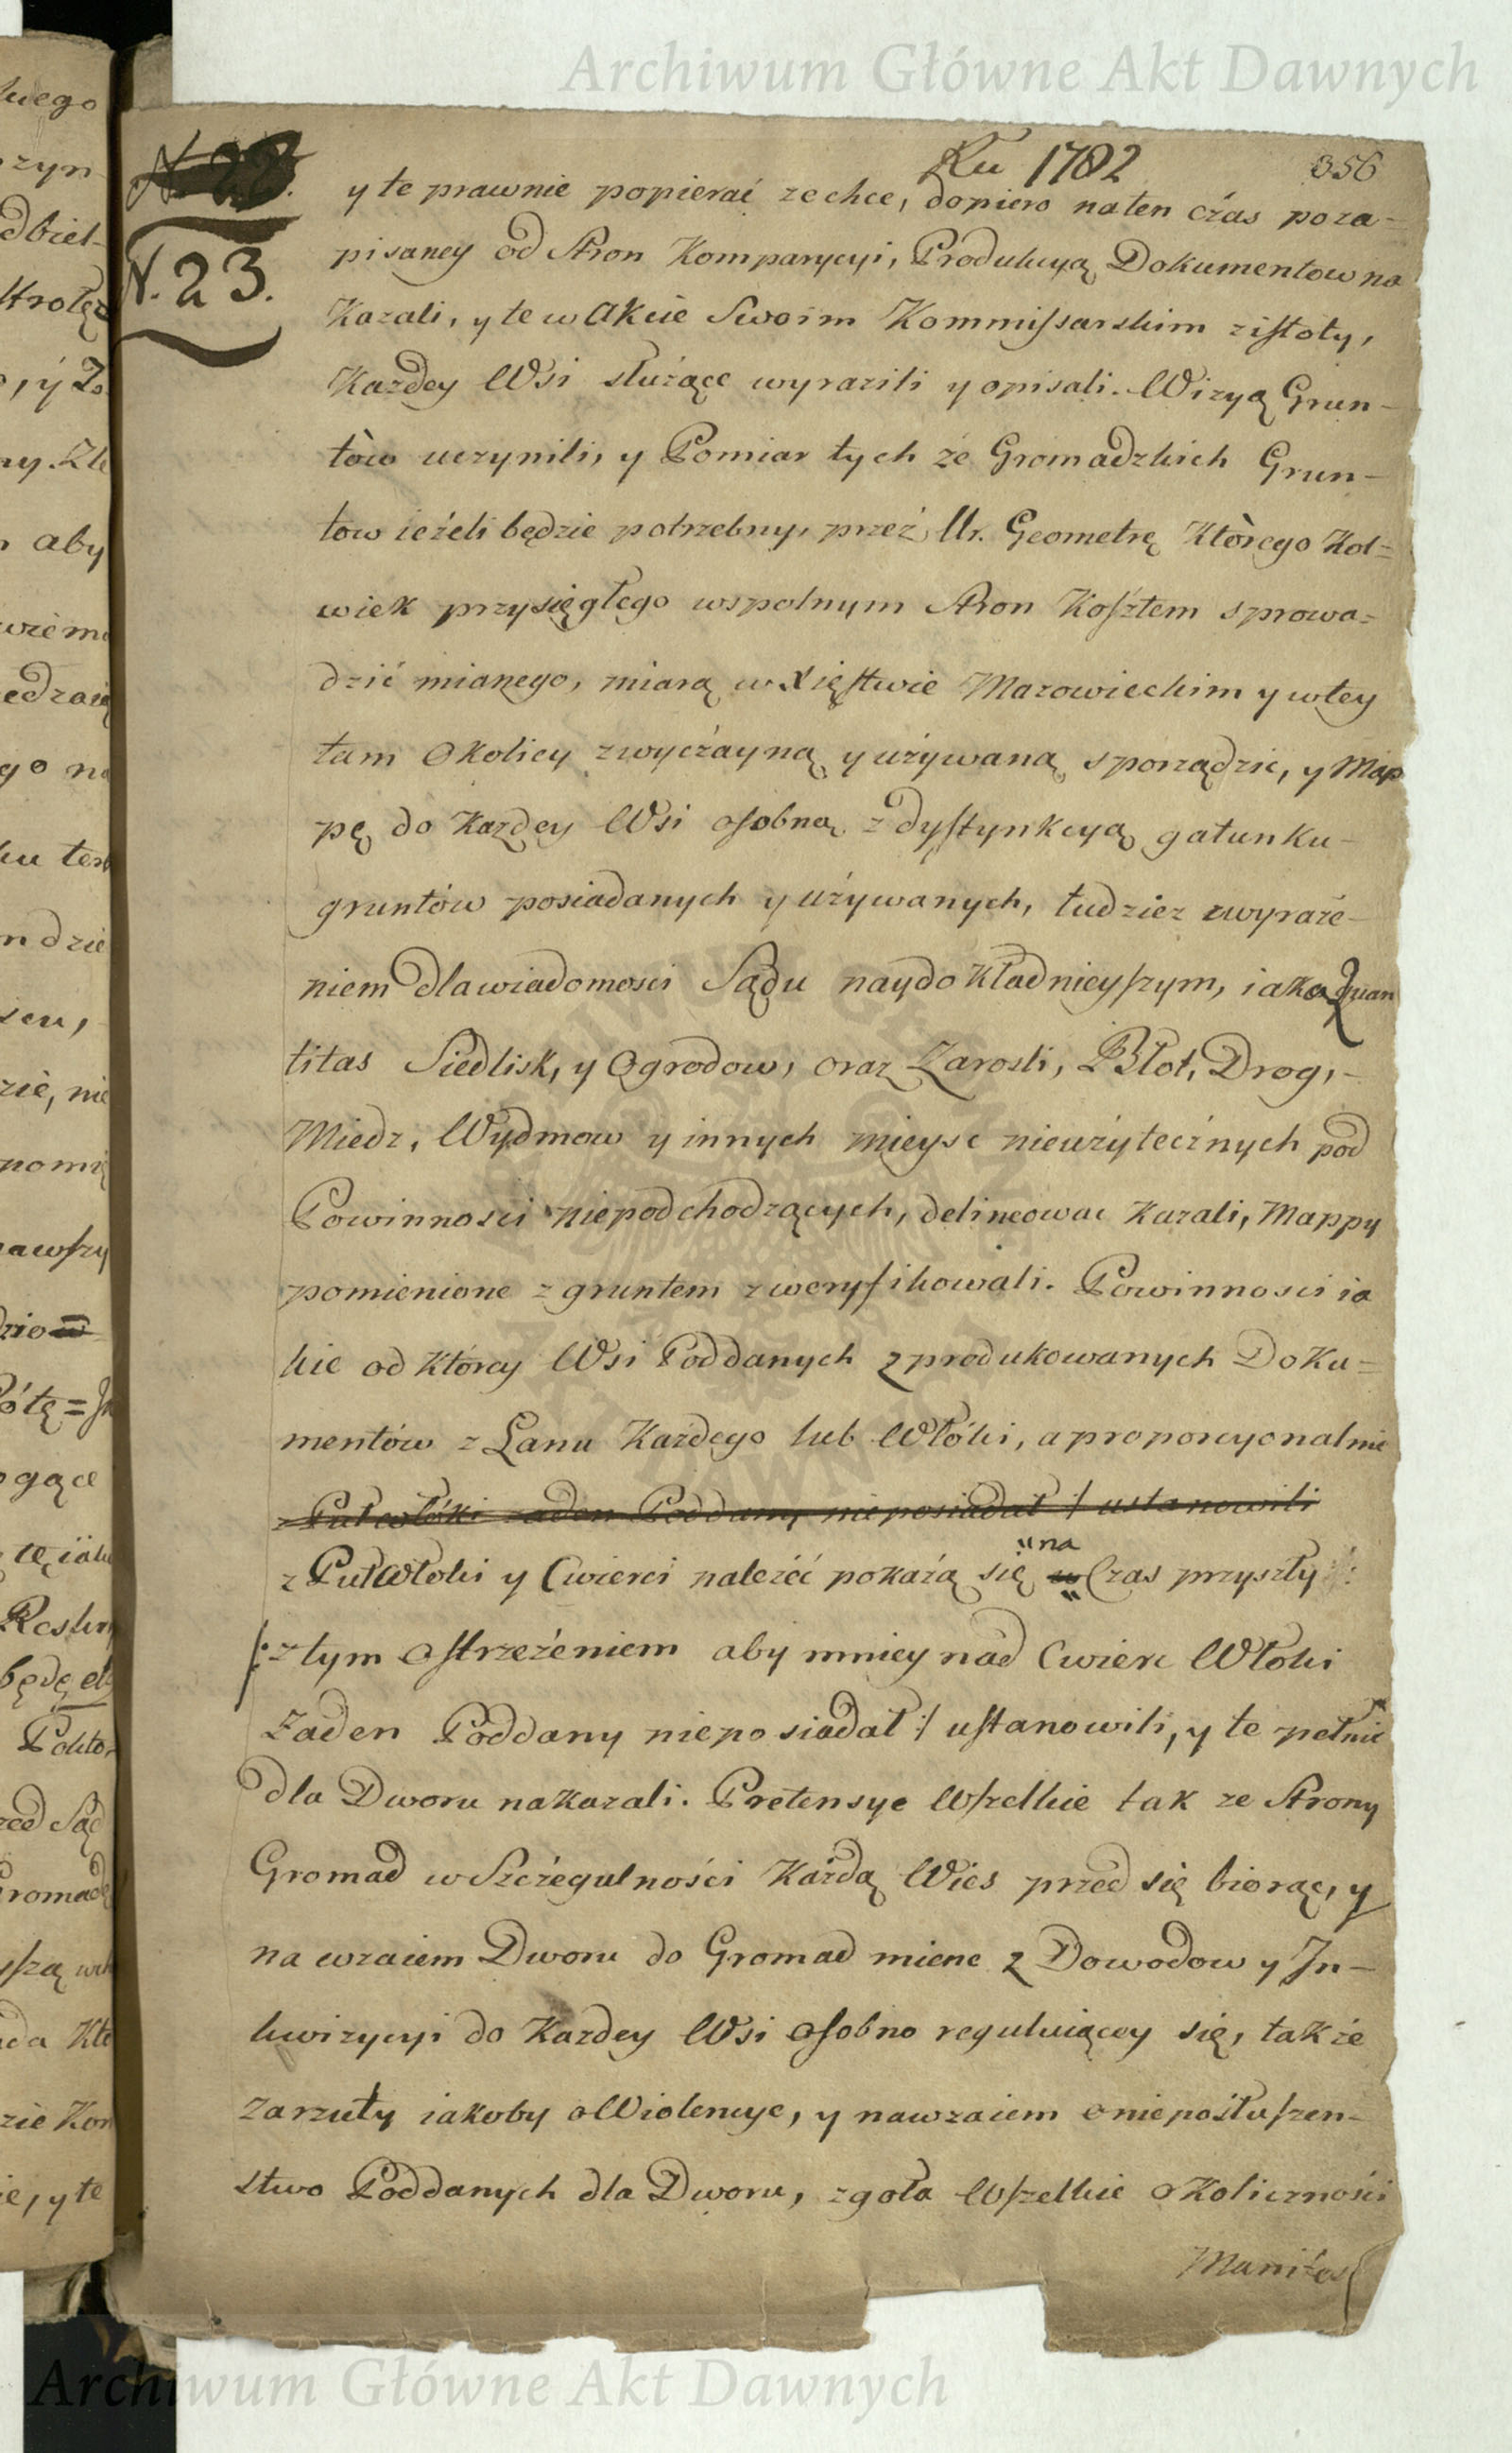 Archiwum Główne Akt Dawnych
Ru 1782
356
N. 23.
y te prawnie popierać zechce, dopiero naten czas poza-
pisaney od Stron Komparycyi, Produkcyą Dokumentow na
Kazali, y te w Akcie Swoim Kommissarskim zistoty,
Kazdey Wsi służące wyrazili y opisali. Wizyą Grun-
tòw uczynili, y Pomiar tych że Gromadzkich Grun-
tow ieżeli będzie potrzebny, przeź Ur. Geometrę Ktòrego Kol=
wiek przysięgłego wspolnym Stron Kosztem sprowa=
dzić mianego, miarą w Xięstwie Mazowieckim y wtey
tam Okolicy zwyczayną y używaną sporządzic, y Map
pę do Kazdey Wsi osobną z dystynkcyą gatunku-
gruntów posiadanych y używanych, tudziez zwyraże-
niem dla wiadomosci Sądu naydokładnieyszym, iaka Quan
titas Siedlisk, y Ogrodow, oraz Zarosli, Błot, Drog,-
Miedz, Wydmow y innych mieysc nieużytecznych pod
Powinnosci niepodchodzących, delineowac Kazali, Mappy
pomienione z gruntem zweryfikowali. Powinnosci ia
kie od Którey Wsi Poddanych z produkowanych Doku=
mentów z Łanu Każdego lub Włóki, a proporcyonalnie
z Puł włóki żaden Poddany nieposiadał :/ ustanowili
z PułWłoki y Cwierci należéć pokażą się w "na Czas przyszły
/: z tym Ostrzeżeniem aby mniey nad Cwierc Włoki
Żaden Poddany nieposiadał :/ ustanowili, y te pełnic
dla Dworu nakazali. Pretensye Wszelkie tak ze Strony
Gromad w Szczegulności Każdą Wies przed się biorąc, y
na wzaiem Dworu do Gromad miene z Dowodow y In-
kwizycyi do Kazdey Wsi osobno regulującey się, takźe
Zarzuty iakoby o Wiolencye, y nawzaiem o nieposłuszen-
stwo Poddanych dla Dworu, zgoła Wszelkie okoliczności
Archiwum Główne Akt Dawnych